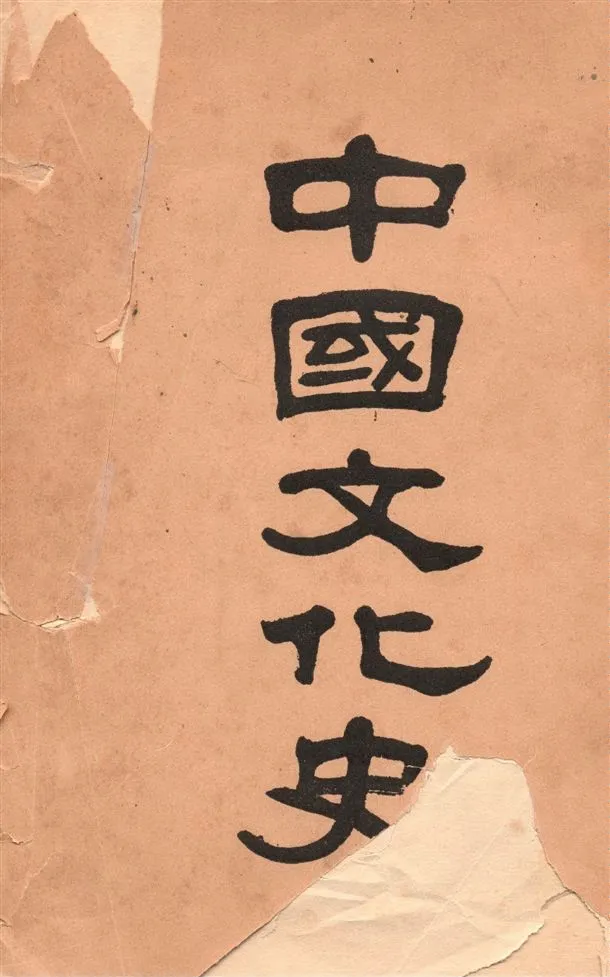 中國文化史